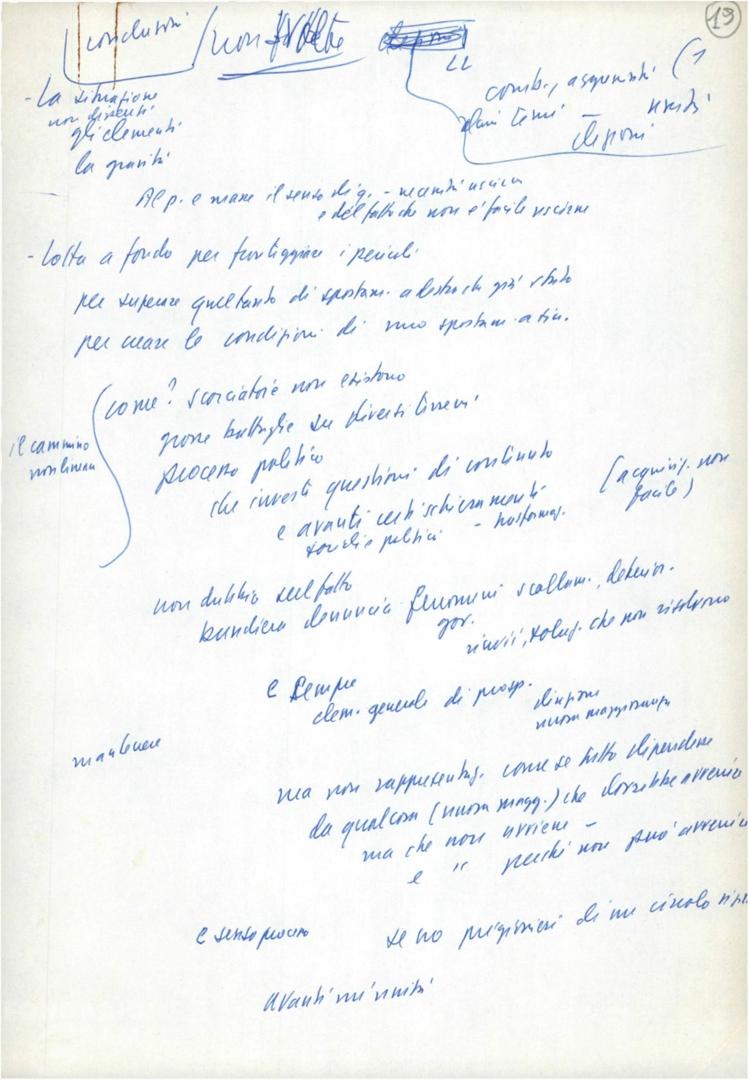 19
conclusioni / non svolte
- La situazione
non diversità
gli elementi
la gravità
elezioni
Al p. e mane il senso di g. - necessità uscire
e del fatto che non è facile uscirne
- Lotta a fondo per fronteggiare i pericoli
per superare quel tanto di spostam. a destra che già stato
per creare le condizioni di uno spostam. a sin.
come? scorciatoie non esistono
grosse battaglie su diversi terreni
il cammino
non lineare
processo politico
che investi questioni di contenuto
e avanti certi schieramenti (acquisiz. non
facile)
politici - trasformaz.
non dubbio sul fatto
bandiera denuncia fenomeni scollam., deterior.
gov.
rinvii, soluz. che non risolvono
e sempre
elem. generale di prosp.
direzione
nuova maggioranza
mantenere
ma non rappresentaz. come se tutto dipendesse
da qualcosa (nuova magg.) che dovrebbe avvenire
ma che non avviene -
e " perché non può avvenire
e senso processo
se no prigionieri di un circolo
avanti unità